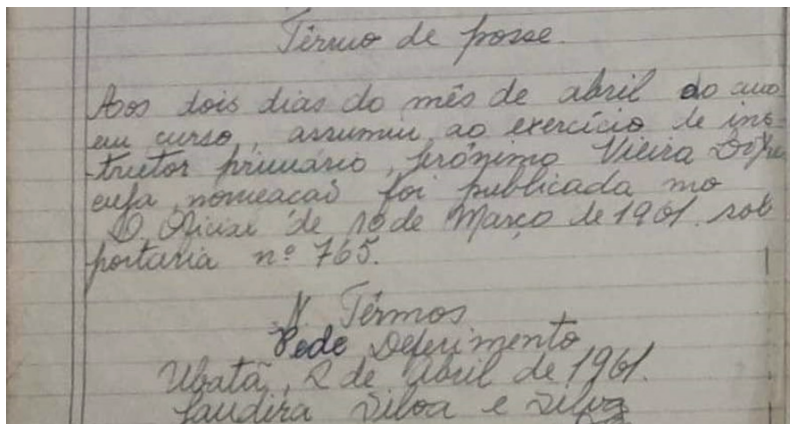 Têrmo de posse.
Aos dois dias do mês de abril do ano
em curso, assumiu ao exercício de ins-
trutor primário, Jerônimo Vieira
cuja nomeacaõ foi publicada no
D Oficial de 10 de Março de 1961. sob
portaria nº 765.
N. Têrmos
Pede Deferimento
Ubatã, 2 de abril de 1961.
Jaudira Silva e Silva